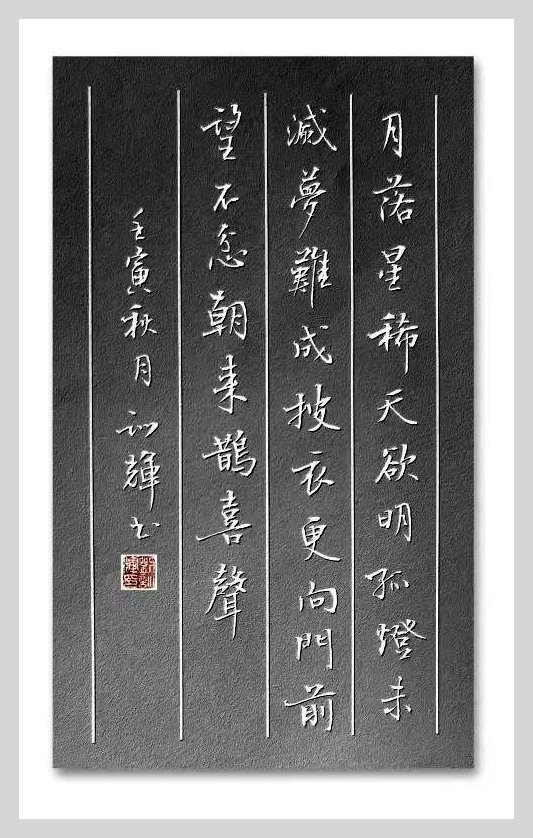 月落星稀天欲明孤燈未
滅夢難成披衣更向門前
望不忿朝来鵲喜聲
壬寅秋月輝书